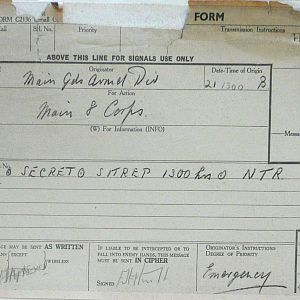 FORM C2136 Small
FORM
Call
Priority
Transmission Instructions
ABOVE THIS LINE FOR SIGNALS USE ONLY
Originator
Date-Time of Origin
Main Gds Armd Div
21 1300 B
For Action
Main 8 Corps.
(W) For Information (INFO)
Message
No
SECRET SITREP 1300 hrs NTR.
MAY BE SENT AS WRITTEN
ANY EXCEPT
WIRELESS
IF LIABLE TO BE INTERCEPTED OR TO
FALL INTO ENEMY HANDS, THIS MESSAGE
MUST BE SENT IN CIPHER
ORIGINATOR'S INSTRUCTIONS
DEGREE OF PRIORITY
Emergency
SIGNED